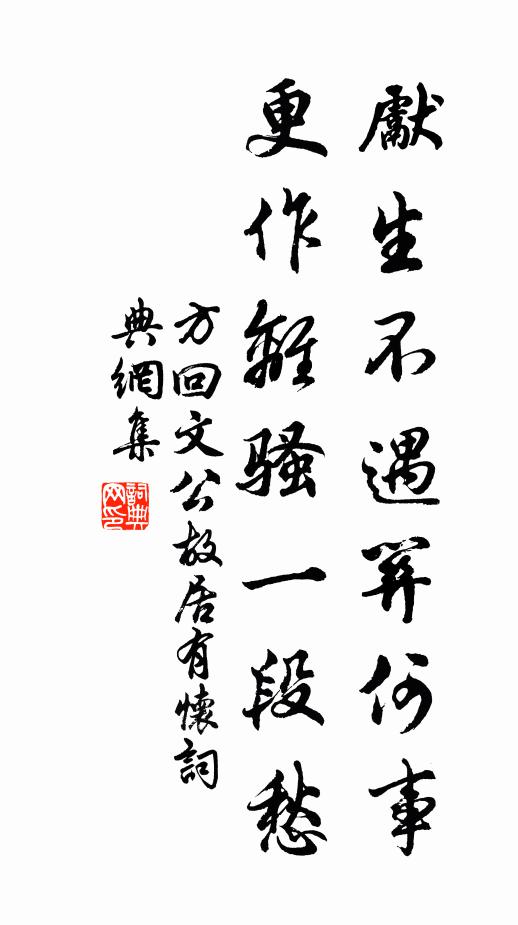 獻生不遇算何事
更作離騷一段愁
方回文公故居有懷詞
典網集
詞典
网印